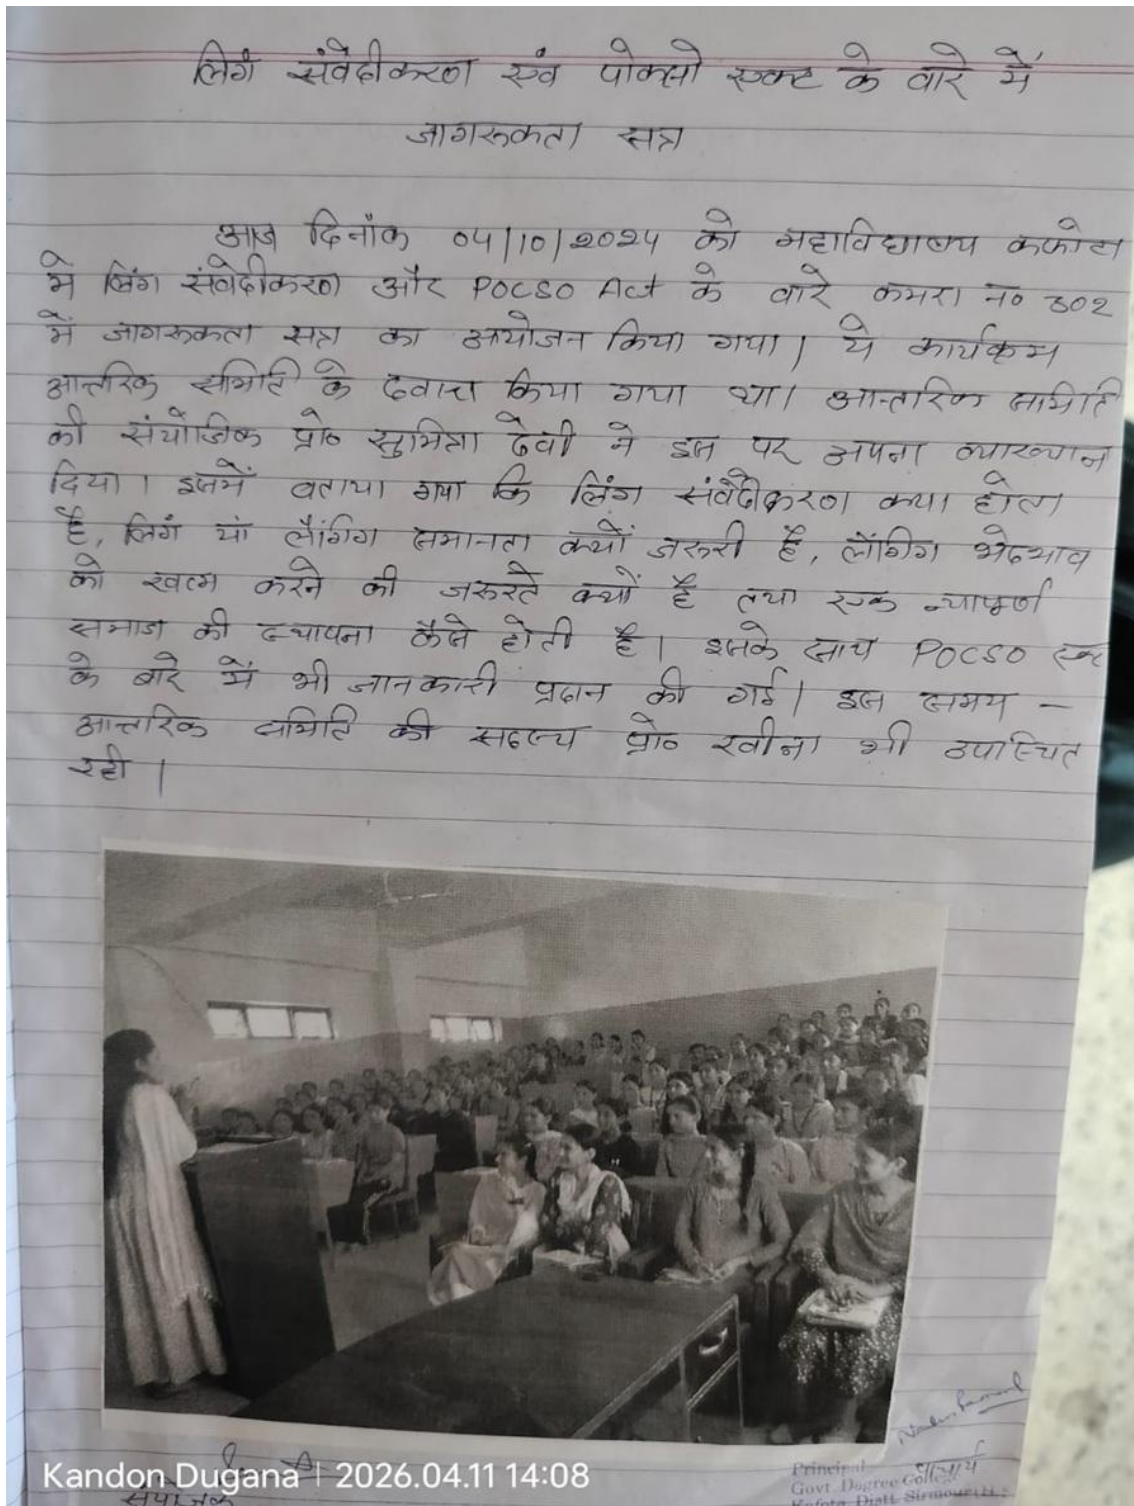 लिगं संवेदीकरण एंव पोक्सो एक्ट के वारे में
जागरूकता सत्र
आज दिनांक 04/10/2024 को महाविद्यालय कफोटा
मे लिंग संवेदीकरण और POCSO Act के वारे कमरा न० 302
में जागरूकता सत्र का आयोजन किया गया। ये कार्यक्रम
आन्तरिक समिति के दवारा किया गया था। आन्तरिक समिति
की संयोजिक प्रो० सुमित्रा देवी ने इस पर अपना व्याख्यान
दिया। इसमें वताया गया कि लिंग संवेदीकरण क्या होता
है, लिगं यां लैंगिग समानता क्यों जरुरी है, लैंगिग भेदभाव
को खत्म करने की जरुरते क्यों है तथा एक न्यापूर्ण
समाज की स्थापना कैसे होती है। इसके साथ POCSO एक्ट
के बारे में भी जानकारी प्रदान की गई। इस समय -
आन्तरिक समिति की सदस्य प्रो० रवीना भी उपस्थित
रही।
Kandon Dugana | 2026.04.11 14:08
संयोजक
प्राचार्य
Principal
Govt. Degree College
Kafota Distt. Sirmour (H.P.)